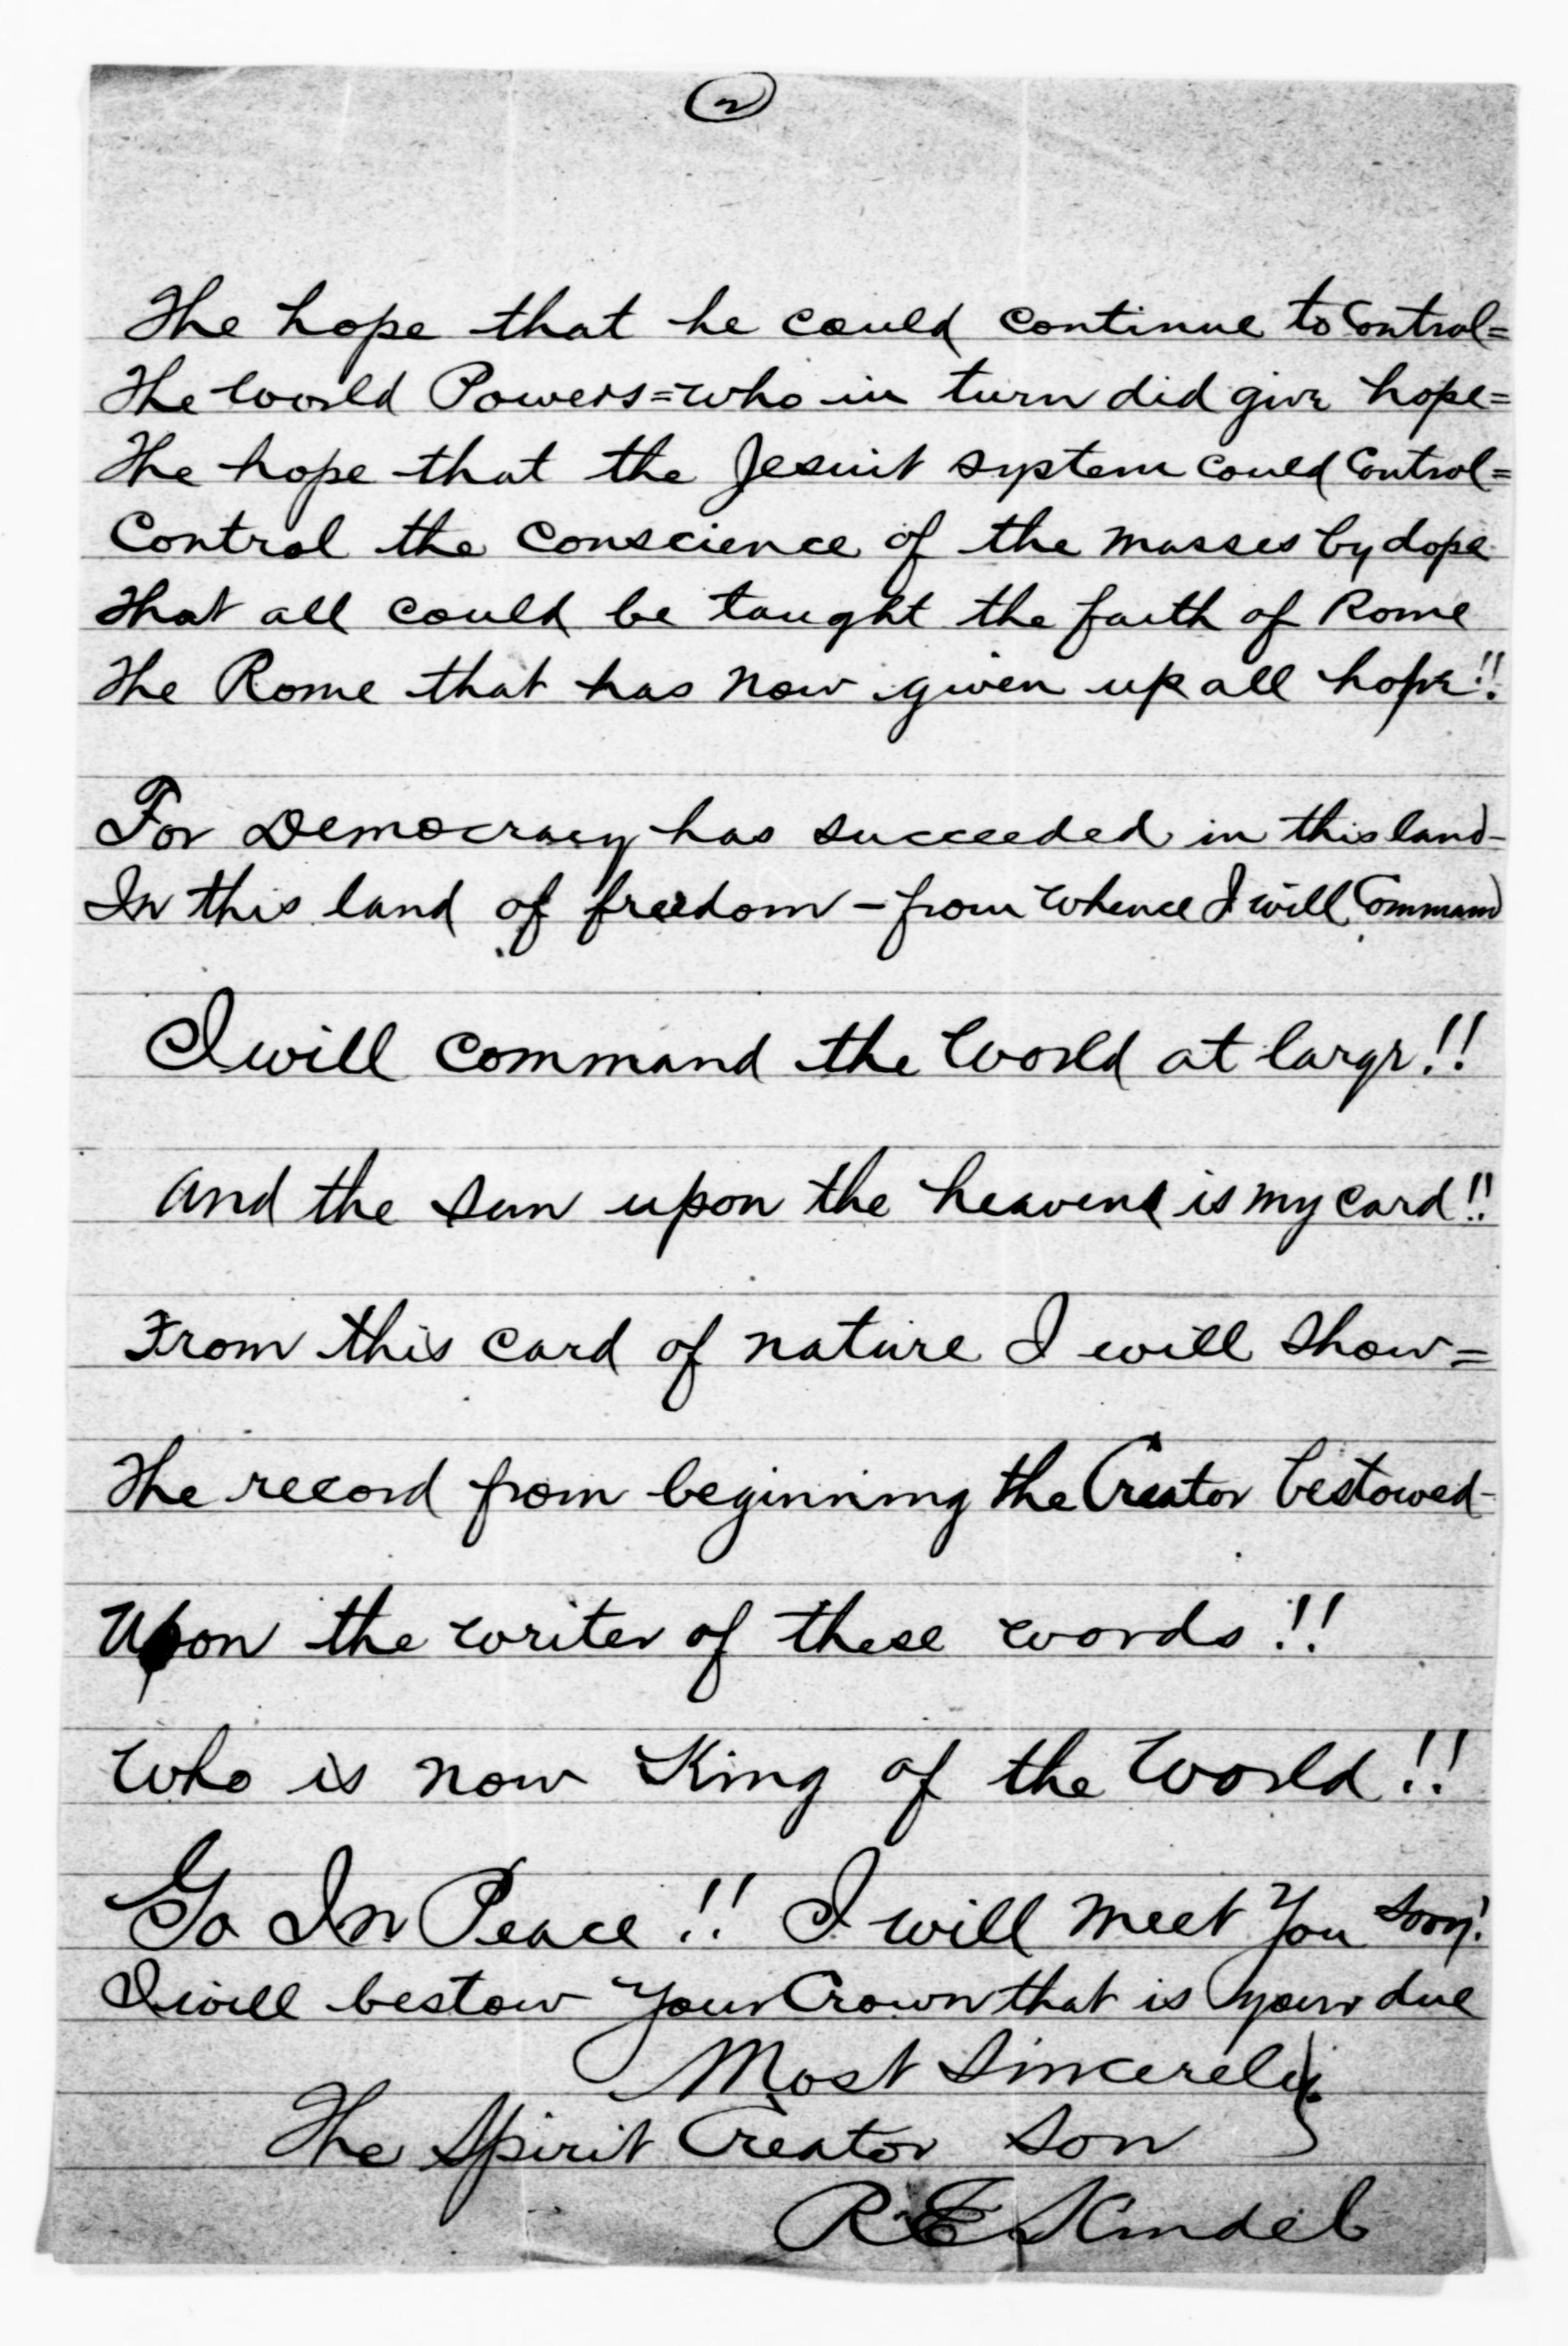 2
The hope that he could continue to control=
The World Powers=who in turn did give hope=
The hope that the Jesuit system could control=
Control the conscience of the masses by dope
That all could be taught the faith of Rome
The Rome that has now given up all hope!!
For Democracy has succeeded in this land-
In this land of freedom - from whence I will Command
I will command the World at large!!
And the sun upon the heavens is my card!!
From this card of nature I will show=
The record from beginning the Creator bestowed-
Upon the writer of these words!!
Who is now King of the World!!
Go In Peace!! I will meet You soon!
I will bestow Your Crown that is your due
Most Sincerely
The Spirit Creator Son
R.E.